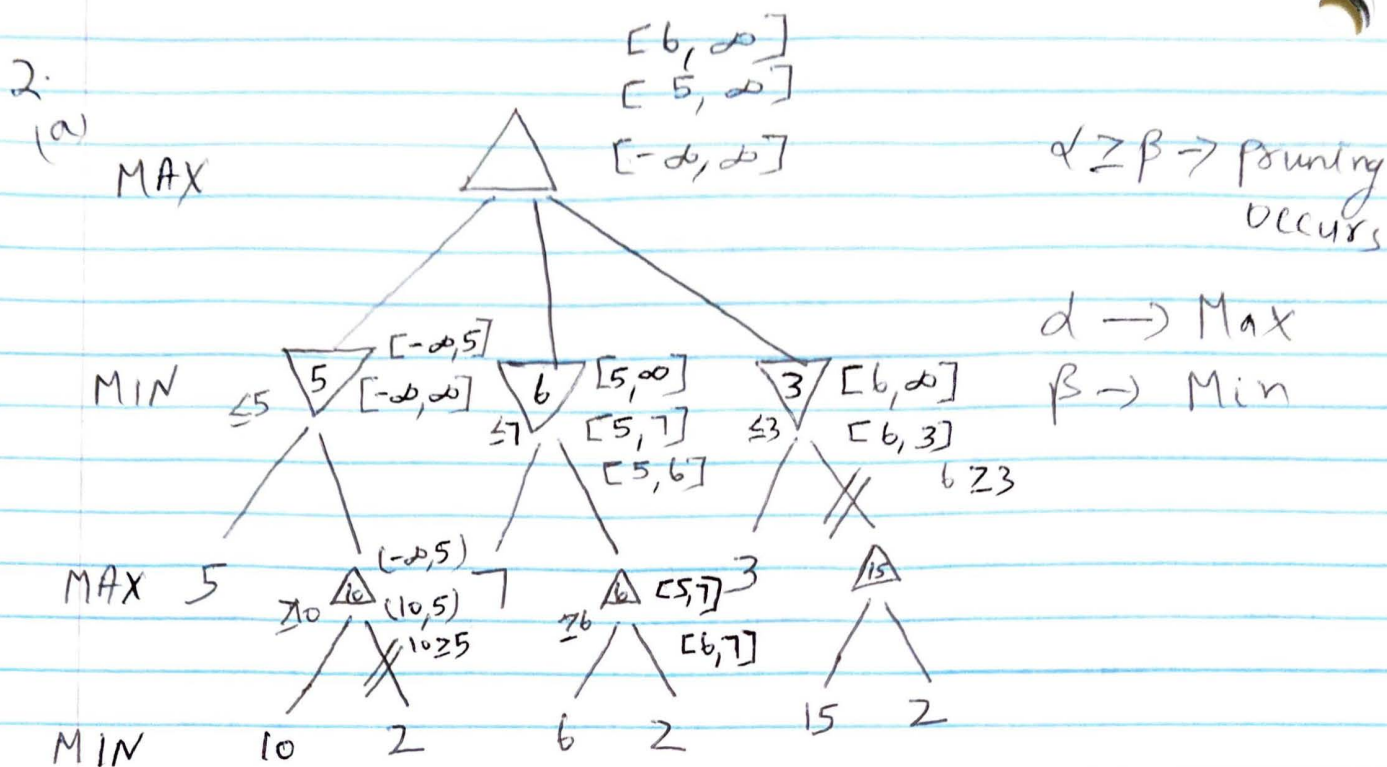 [6, ∞]
2.
[5, ∞]
(a)
MAX
[-∞, ∞]
α ≥ β → pruning
occurs
α → Max
MIN
≤5
5
[-∞,5]
[-∞,∞]
≤7
6
[5,∞]
[5,7]
[5,6]
≤3
3
[6,∞]
[6,3]
6≥3
β → Min
MAX
5
≥10
10
(-∞,5)
(10,5)
10≥5
7
≥6
6
[5,7]
[6,7]
3
15
MIN
10
2
6
2
15
2